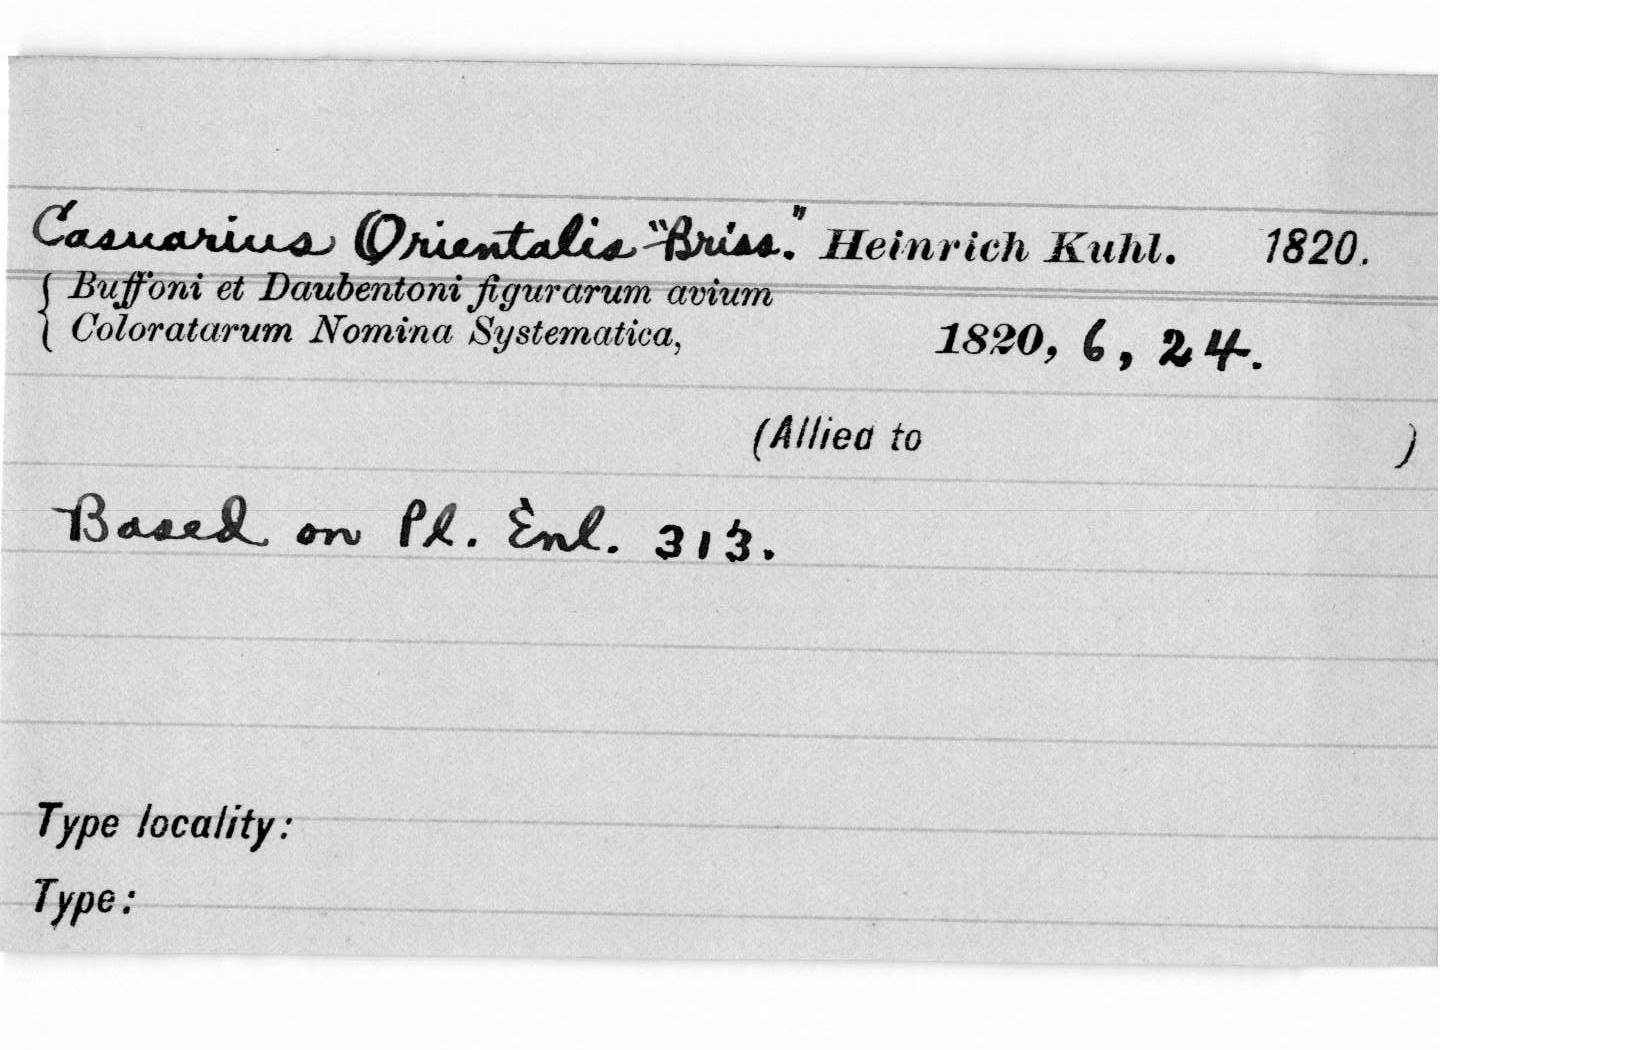 Casuarius Orientalis "Briss." Heinrich Kuhl. 1820.
{ Buffoni et Daubentoni figurarum avium
Coloratarum Nomina Systematica, 1820, 6, 24.
(Allied to )
Based on Pl. Enl. 313.
Type locality:
Type: